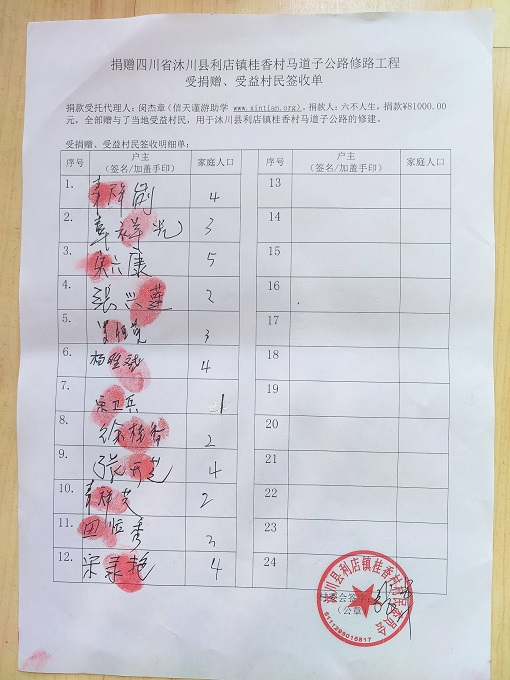 捐赠四川省沐川县利店镇桂香村马道子公路修路工程
受捐赠、受益村民签收单
捐款受托代理人：闵杰章（信天谨游助学 www.xintian.org）。捐款人：六不人生。捐款¥81000.00
元，全部赠与了当地受益村民，用于沐川县利店镇桂香村马道子公路的修建。
受捐赠、受益村民签收明细单：
序号 户主（签名/加盖手印） 家庭人口 序号 户主（签名/加盖手印） 家庭人口
1. 4 13
2. 祥 3 14
3. 宋兴康 5 15
4. 张兴莲 2 16
5. 3 17
6. 杨 4 18
7. 宋卫兵 1 19
8. 徐桂 2 20
9. 张开芝 4 21
10. 2 22
11. 田恒秀 3 23
12. 宋 艳 4 24
村委会签
（公章）
沐川县利店镇桂香村村民委员会
5111295015817